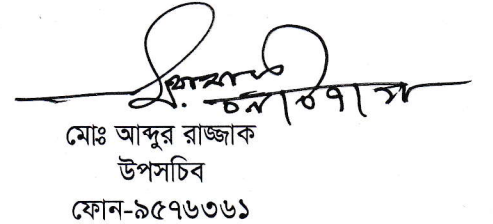 মোঃ আব্দুর রাজ্জাক
উপসচিব
ফোন-৯৫৭৬৩৬১